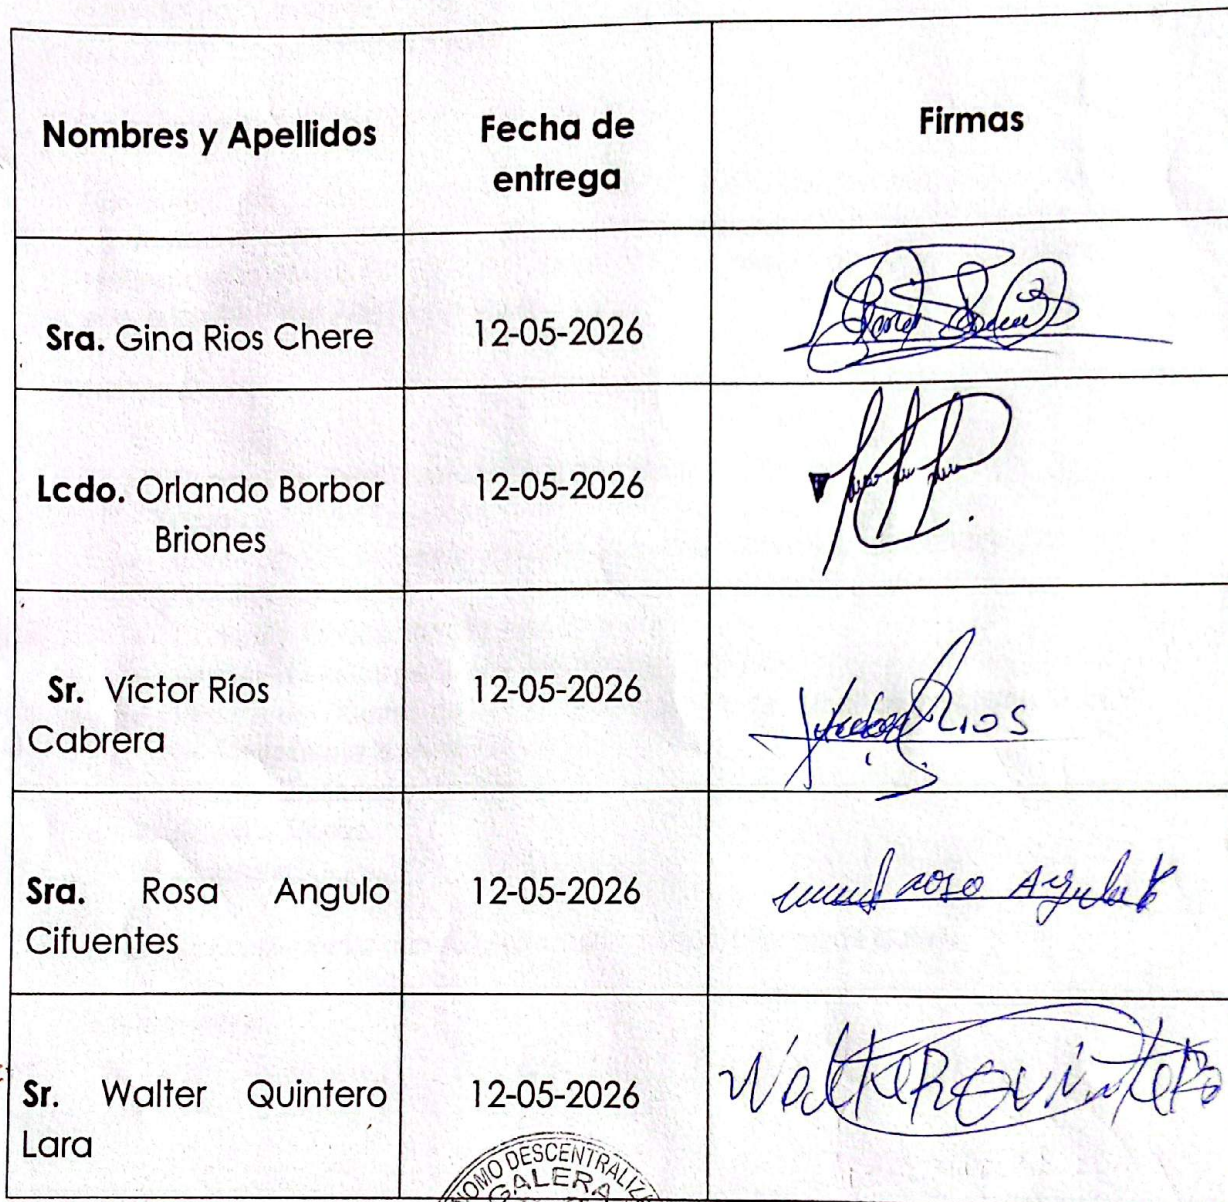 Nombres y Apellidos
Fecha de
entrega
Firmas
Sra. Gina Rios Chere
12-05-2026
Lcdo. Orlando Borbor
Briones
12-05-2026
Sr. Víctor Ríos
Cabrera
12-05-2026
Rios
Sra. Rosa Angulo
Cifuentes
12-05-2026
rosa Angulo
Sr. Walter Quintero
Lara
12-05-2026
Walter Quintero
OMO DESCENTRALIZA
GALERA